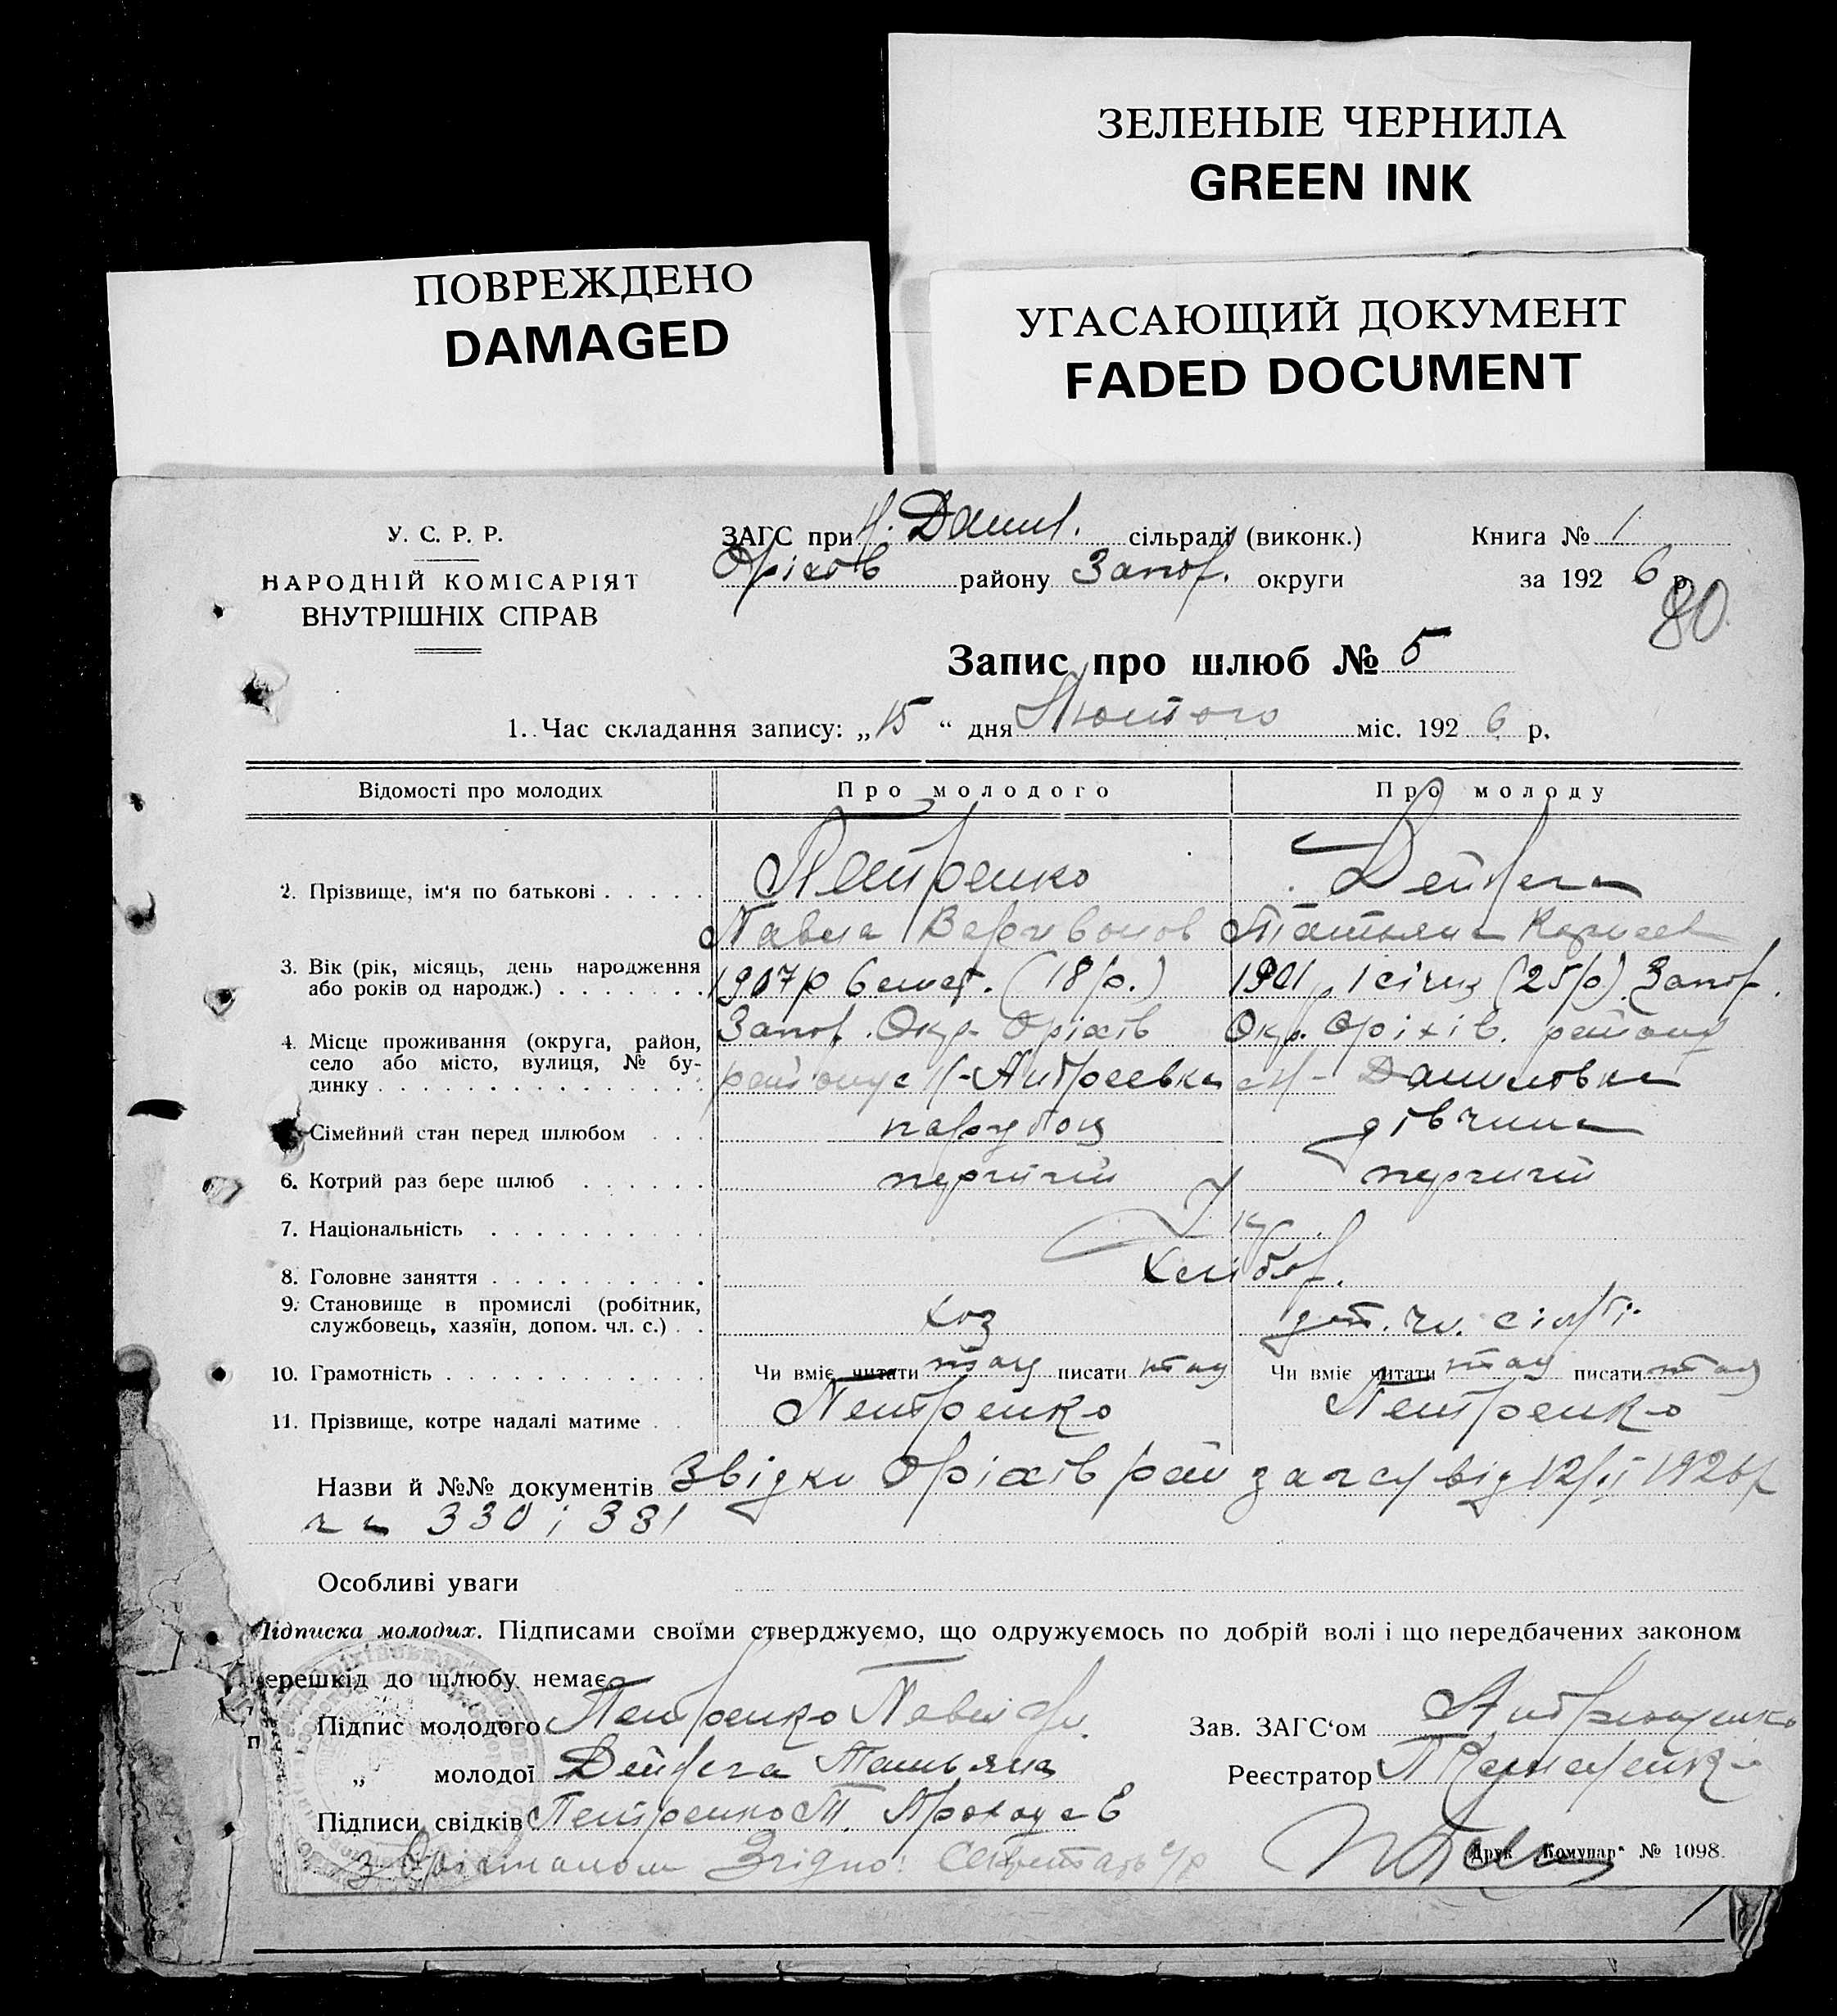 ЗЕЛЕНЫЕ ЧЕРНИЛА
GREEN INK
ПОВРЕЖДЕНО
DAMAGED
УГАСАЮЩИЙ ДОКУМЕНТ
FADED DOCUMENT
У. С. Р. Р.
НАРОДНІЙ КОМІСАРІЯТ
ВНУТРІШНІХ СПРАВ
ЗАГС при Н. Данил. сільраді (виконк.)
Оріхів району Запор. округи
Книга № 1
за 1926 р.
80
Запис про шлюб № 5
1. Час складання запису: „15“ дня Лютого міс. 1926 р.
Відомості про молодих Про молодого Про молоду
2. Прізвище, ім'я по батькові Петренко Дейнега
Павла Татьяна
3. Вік (рік, місяць, день народження 1907р (18 р.) 1901 р 1 січня (25 р) Запор.
або років од народж.)
4. Місце проживання (округа, район, Запор. Окр. Оріхів Окр. Оріхів. району
село або місто, вулиця, № бу- району с Н-Андреевка с Н- Даниловка
динку
Сімейний стан перед шлюбом парубок дівчина
6. Котрий раз бере шлюб перший перший
7. Національність Укр.
8. Головне заняття Хлібор.
9. Становище в промислі (робітник, хаз доп. чл. сім'ї
службовець, хазяїн, допом. чл. с.)
10. Грамотність Чи вміє читати так писати так Чи вміє читати так писати так
11. Прізвище, котре надалі матиме Петренко Петренко
Назви й №№ документів Звідки Оріхів рай загсу від 12/II 1926р
330 і 331
Особливі уваги
Підписка молодих. Підписами своїми стверджуємо, що одружуємось по добрій волі і що передбачених законом
перешкід до шлюбу немає
Підпис молодого Петренко Павел
Зав. ЗАГС'ом Андрющенко
„ молодої Дейнега Татьяна
Реєстратор
Підписи свідків Петренко Т.
З Оригіналом Згідно: Секретарь с/р
Друк „Комунар“ № 1098.